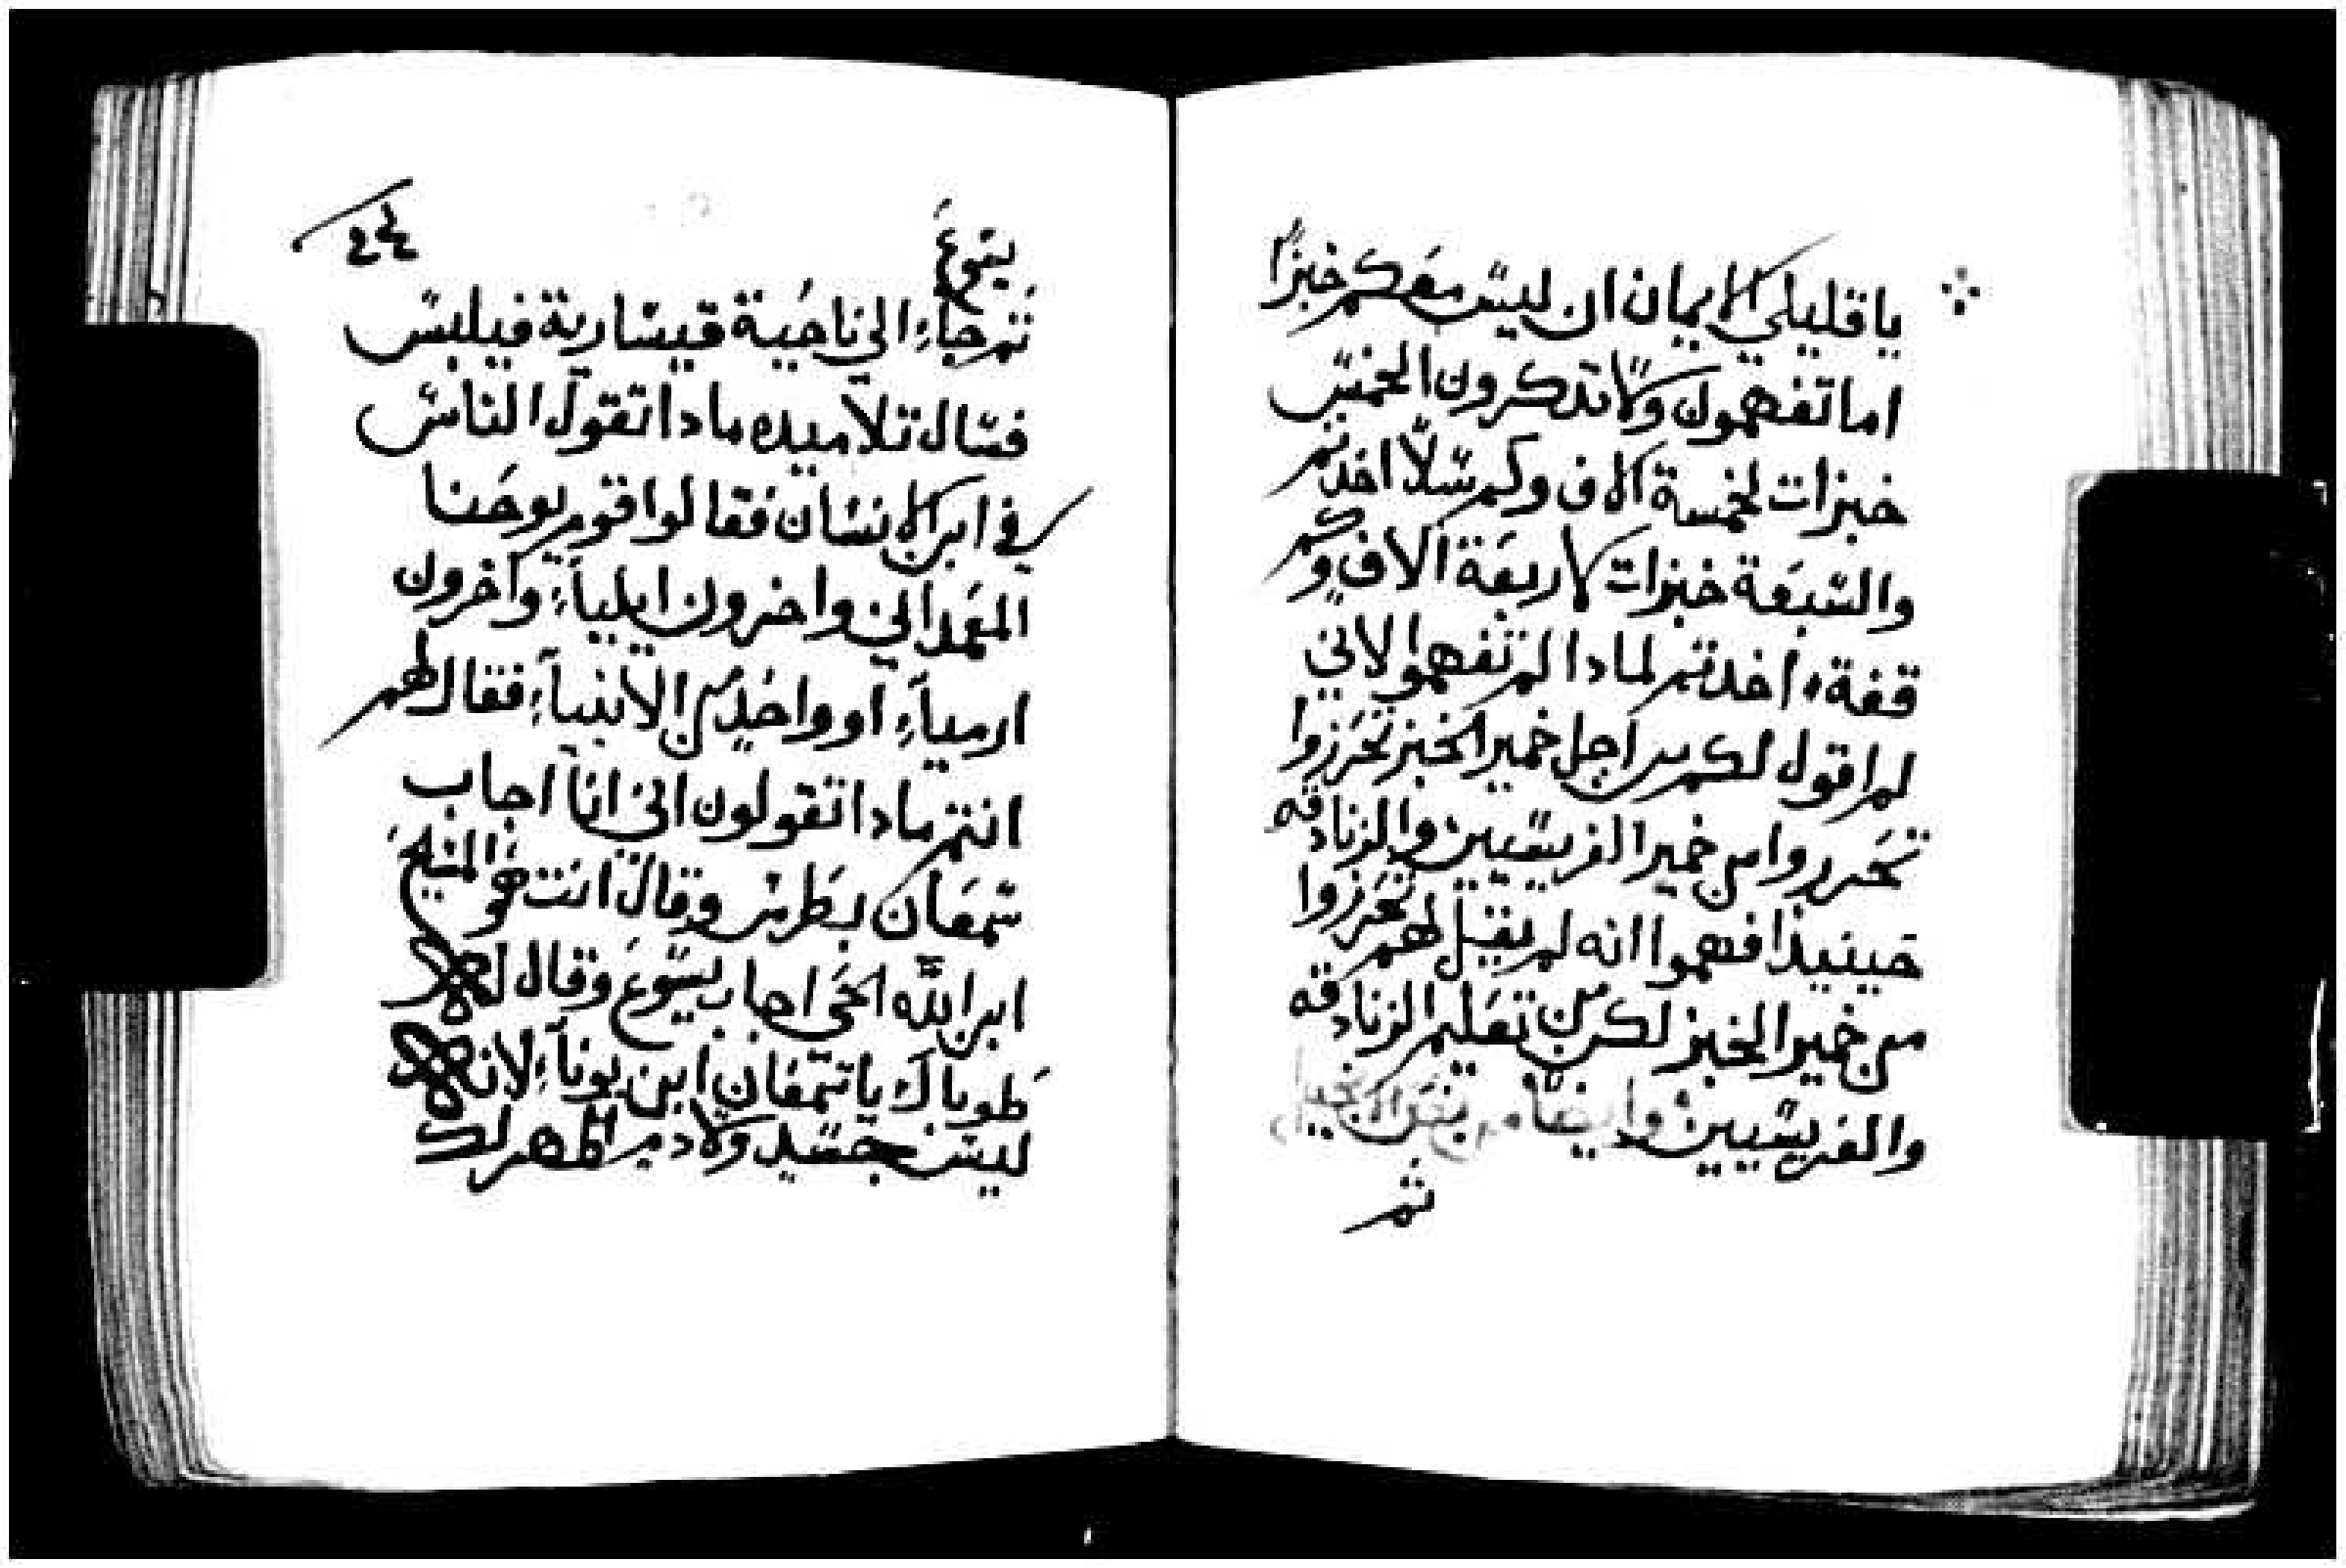 ياقليلي الايمان ان ليس معكم خبزًا
اما تفهمون ولا تدكرون الخمس
خبزات لخمسة الاف وكم سلًا اخدتم
والسبعة خبزات لاربعة الاف وكم
قفة اخدتم لمادا لم تفهموا لاني
لم اقول لكم من اجل خمير الخبز تحرزوا
تحرروا من خمير الفريسيين والزنادقه
حينيذ افهموا انه لم يقيل لهم تحرزوا
من خمير الخبز لكن من تعليم الزنادقه
والفريسيين وايضًا من
ثم
يسوع
ثم جاء الي ناحية قيسارية فيلبس
فسال تلاميده مادا تقول الناس
في ابن الانسان فقالوا قوم يوحنا
المعمداني واخرون ايلياء واخرون
ارمياء او واحد من الانبياء فقال لهم
انتم مادا تقولون اني انا اجاب
سمعان بطرس وقال انت هو المسيح
ابن الله الحي اجاب يسوع وقال له
طوباك يا سمعان ابن يوناء لانه
ليس جسد ولا دم اظهر لك